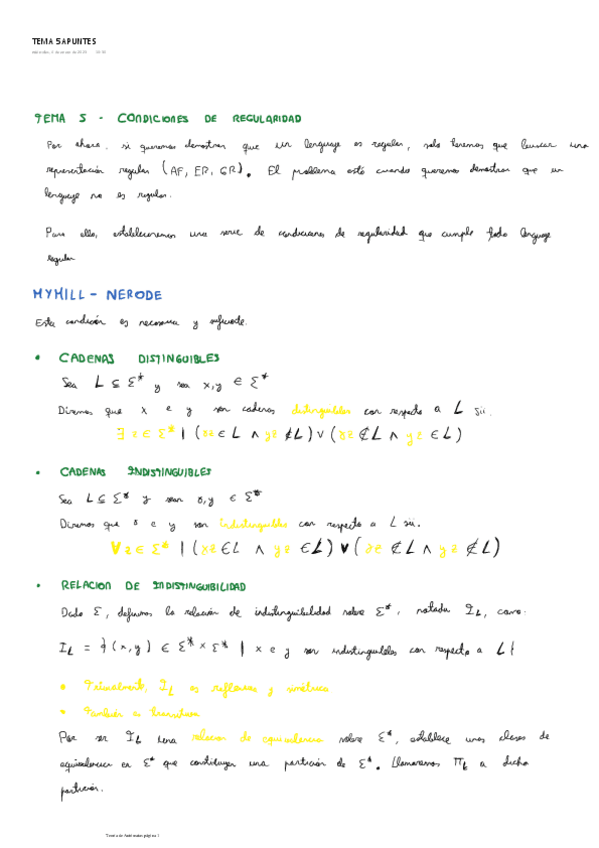 TEMA 5 APUNTES
TEMA 5 - CONDICIONES DE REGULARIDAD
Por ahora, si queremos demostrar que un lenguaje es regular, solo tenemos que buscar una
representación regular (AF, ER, GR). El problema está cuando queremos demostrar que un
lenguaje no es regular.
Para ello, estableceremos una serie de condiciones de regularidad que cumple todo lenguaje
regular
MYHILL - NERODE
Esta condición es necesaria y suficiente.
• CADENAS DISTINGUIBLES
Sea L ⊆ Σ* y sean x,y ∈ Σ*
Diremos que x e y son cadenas distinguibles con respecto a L sii.
∃ z ∈ Σ* | (xz ∈ L ∧ yz ∉ L) ∨ (xz ∉ L ∧ yz ∈ L)
• CADENAS INDISTINGUIBLES
Sea L ⊆ Σ* y sean x,y ∈ Σ*
Diremos que x e y son indistinguibles con respecto a L sii.
∀ z ∈ Σ* | (xz ∈ L ∧ yz ∈ L) ∨ (xz ∉ L ∧ yz ∉ L)
• RELACION DE INDISTINGUIBILIDAD
Dado Σ, definimos la relación de indistinguibilidad sobre Σ*, notada I_L, como:
I_L = {(x,y) ∈ Σ* × Σ* | x e y son indistinguibles con respecto a L}
• Trivialmente, I_L es reflexiva y simétrica
• También es transitiva
Por ser I_L una relacion de equivalencia sobre Σ*, establece unas clases de
equivalencia en Σ* que constituyen una partición de Σ*. Llamaremos Π_L a dicha
partición.
Teoría de Autómatas página 1